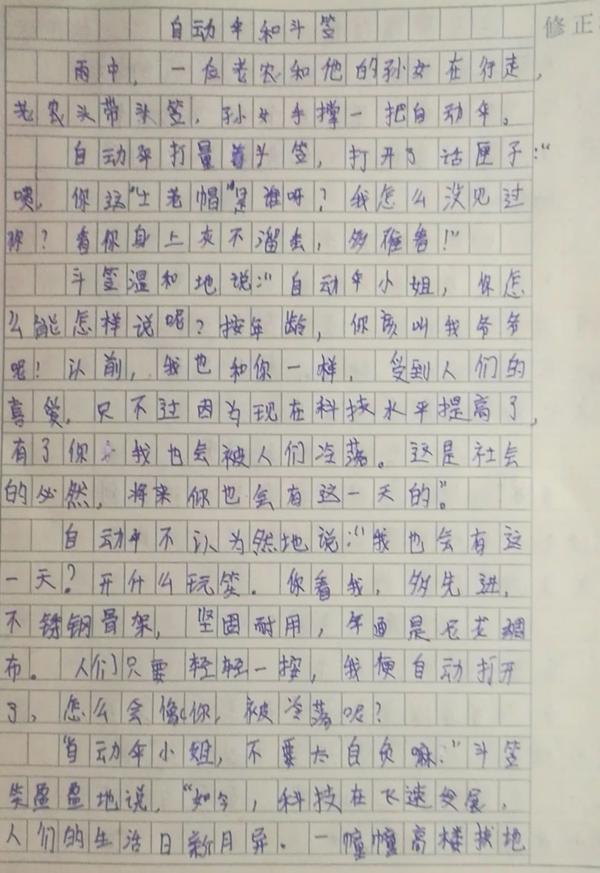 自动伞和斗笠
修正
雨中，一位老农和他的孙女在行走，
老农头带斗笠，孙女手撑一把自动伞。
自动伞打量着斗笠，打开了话匣子：“
喂，你这“土老帽”是谁呀？我怎么没见过
你？看你身上灰不溜丢，多难看！”
斗笠温和地说：“自动伞小姐，你怎
么能怎样说呢？按年龄，你该叫我爷爷
呢！以前，我也和你一样，受到人们的
喜爱，只不过因为现在科技水平提高了，
有了你，我也会被人们冷落。这是社会
的必然，将来你也会有这一天的”。
自动伞不以为然地说：“我也会有这
一天？开什么玩笑。你看我，多先进，
不锈钢骨架，坚固耐用，伞面是尼龙绸
布。人们只要轻轻一按，我便自动打开
了，怎么会像你，被冷落呢？
“自动伞小姐，不要太自负嘛：”斗笠
笑盈盈地说，“如今，科技在飞速发展，
人们的生活日新月异。一幢幢高楼拔地